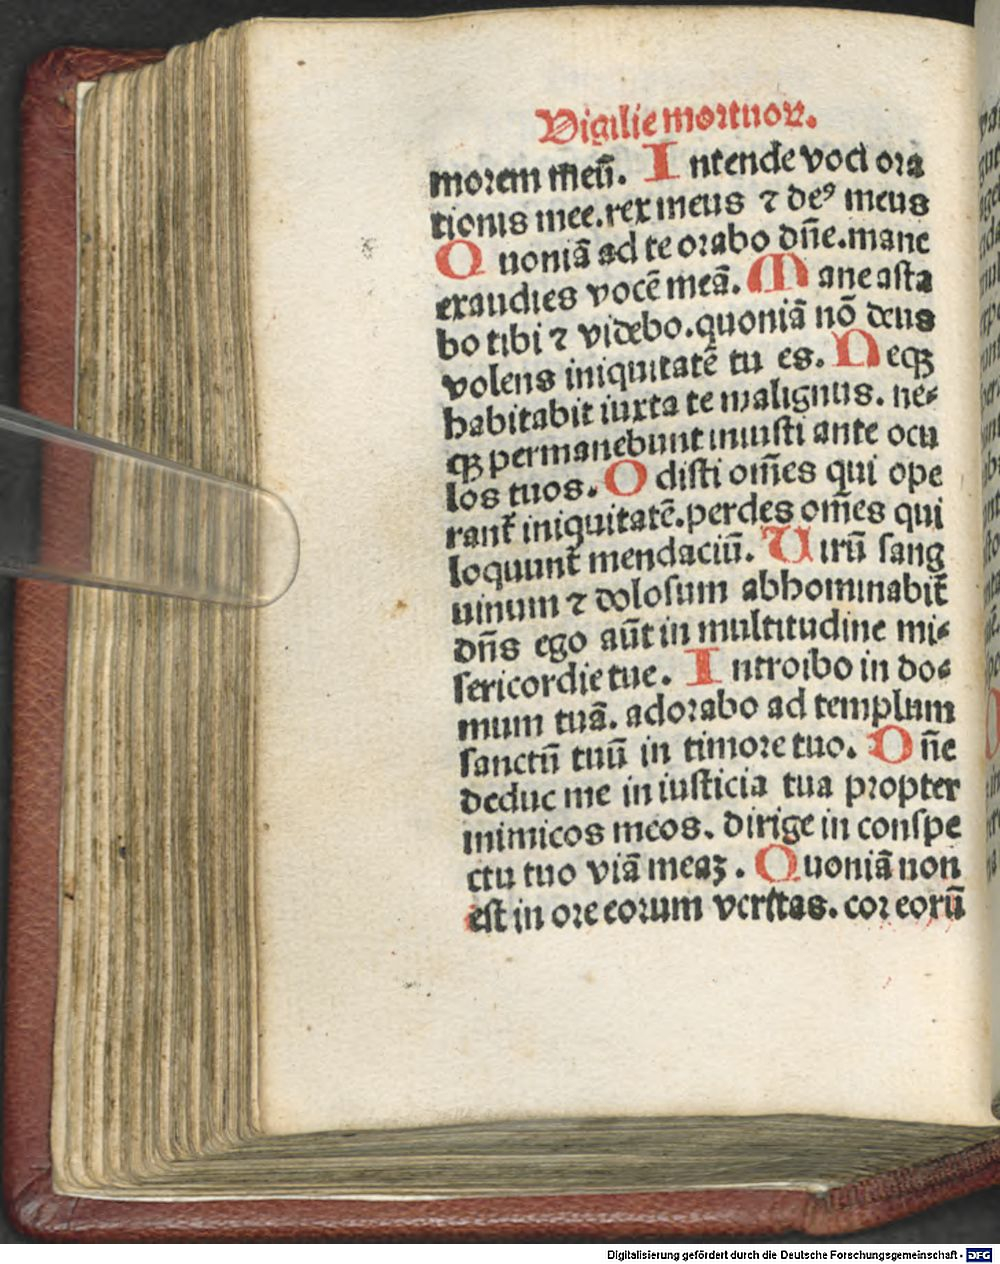 Vigilie mortuoꝝ.
morem meū. Intende voci ora
tionis mee.rex meus ⁊ deꝰ meus
Quoniā ad te orabo dn̄e.mane
exaudies vocē meā. Mane asta
bo tibi ⁊ videbo.quoniā nō deus
volens iniquitatē tu es. Neqꝫ
habitabit iuxta te malignus. ne⸗
qꝫ permanebunt iniusti ante ocu
los tuos. Odisti om̄es qui ope
rant᷑ iniquitatē.perdes om̄es qui
loquunt᷑ mendaciū. Virū sang
uinum ⁊ dolosum abhominabit᷑
dn̄s ego aūt in multitudine mi⸗
sericordie tue. Introibo in do⸗
mum tuā. adorabo ad templum
sanctū tuū in timore tuo. Dn̄e
deduc me in iusticia tua propter
inimicos meos. dirige in conspe
ctu tuo viā meaꝫ. Quoniā non
est in ore eorum veritas. cor eorū
Digitalisierung gefördert durch die Deutsche Forschungsgemeinschaft - DFG